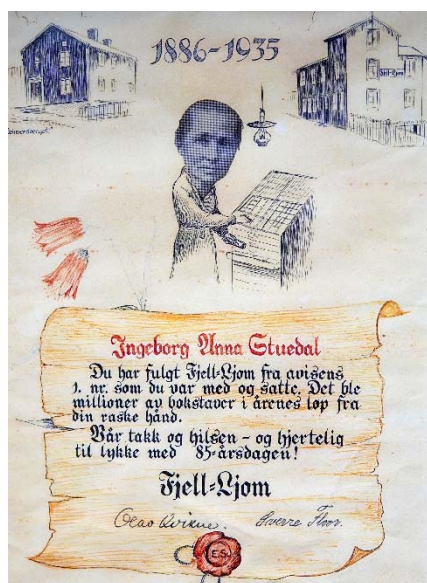 1886-1935
Fjell-Ljom
Ingeborg Anna Stuedal
Du har fulgt Fjell-Ljom fra avisens
1. nr. som du var med og satte. Det ble
millioner av bokstaver i årenes løp fra
din raske hånd.
Vår takk og hilsen – og hjertelig
til lykke med 85-årsdagen!
Fjell-Ljom
Olao Kvikne. Sverre Floor.
E.S.